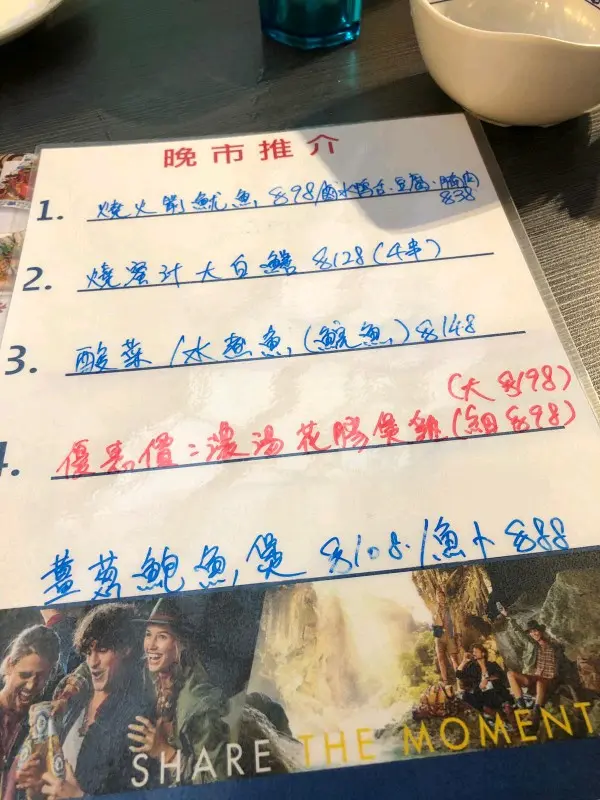 晚市推介
1. 燒火箭魷魚 $98/鹵水鴨舌.豆腐.腩肉
$38
2. 燒蜜汁大白鱔 $128 (4串)
3. 酸菜/水煮魚(鯇魚) $148
(大 $198)
優惠價：濃湯花膠煲雞 (細 $98)
薑蔥鮑魚煲 $108./魚卜 $88
SHARE THE MOMENT